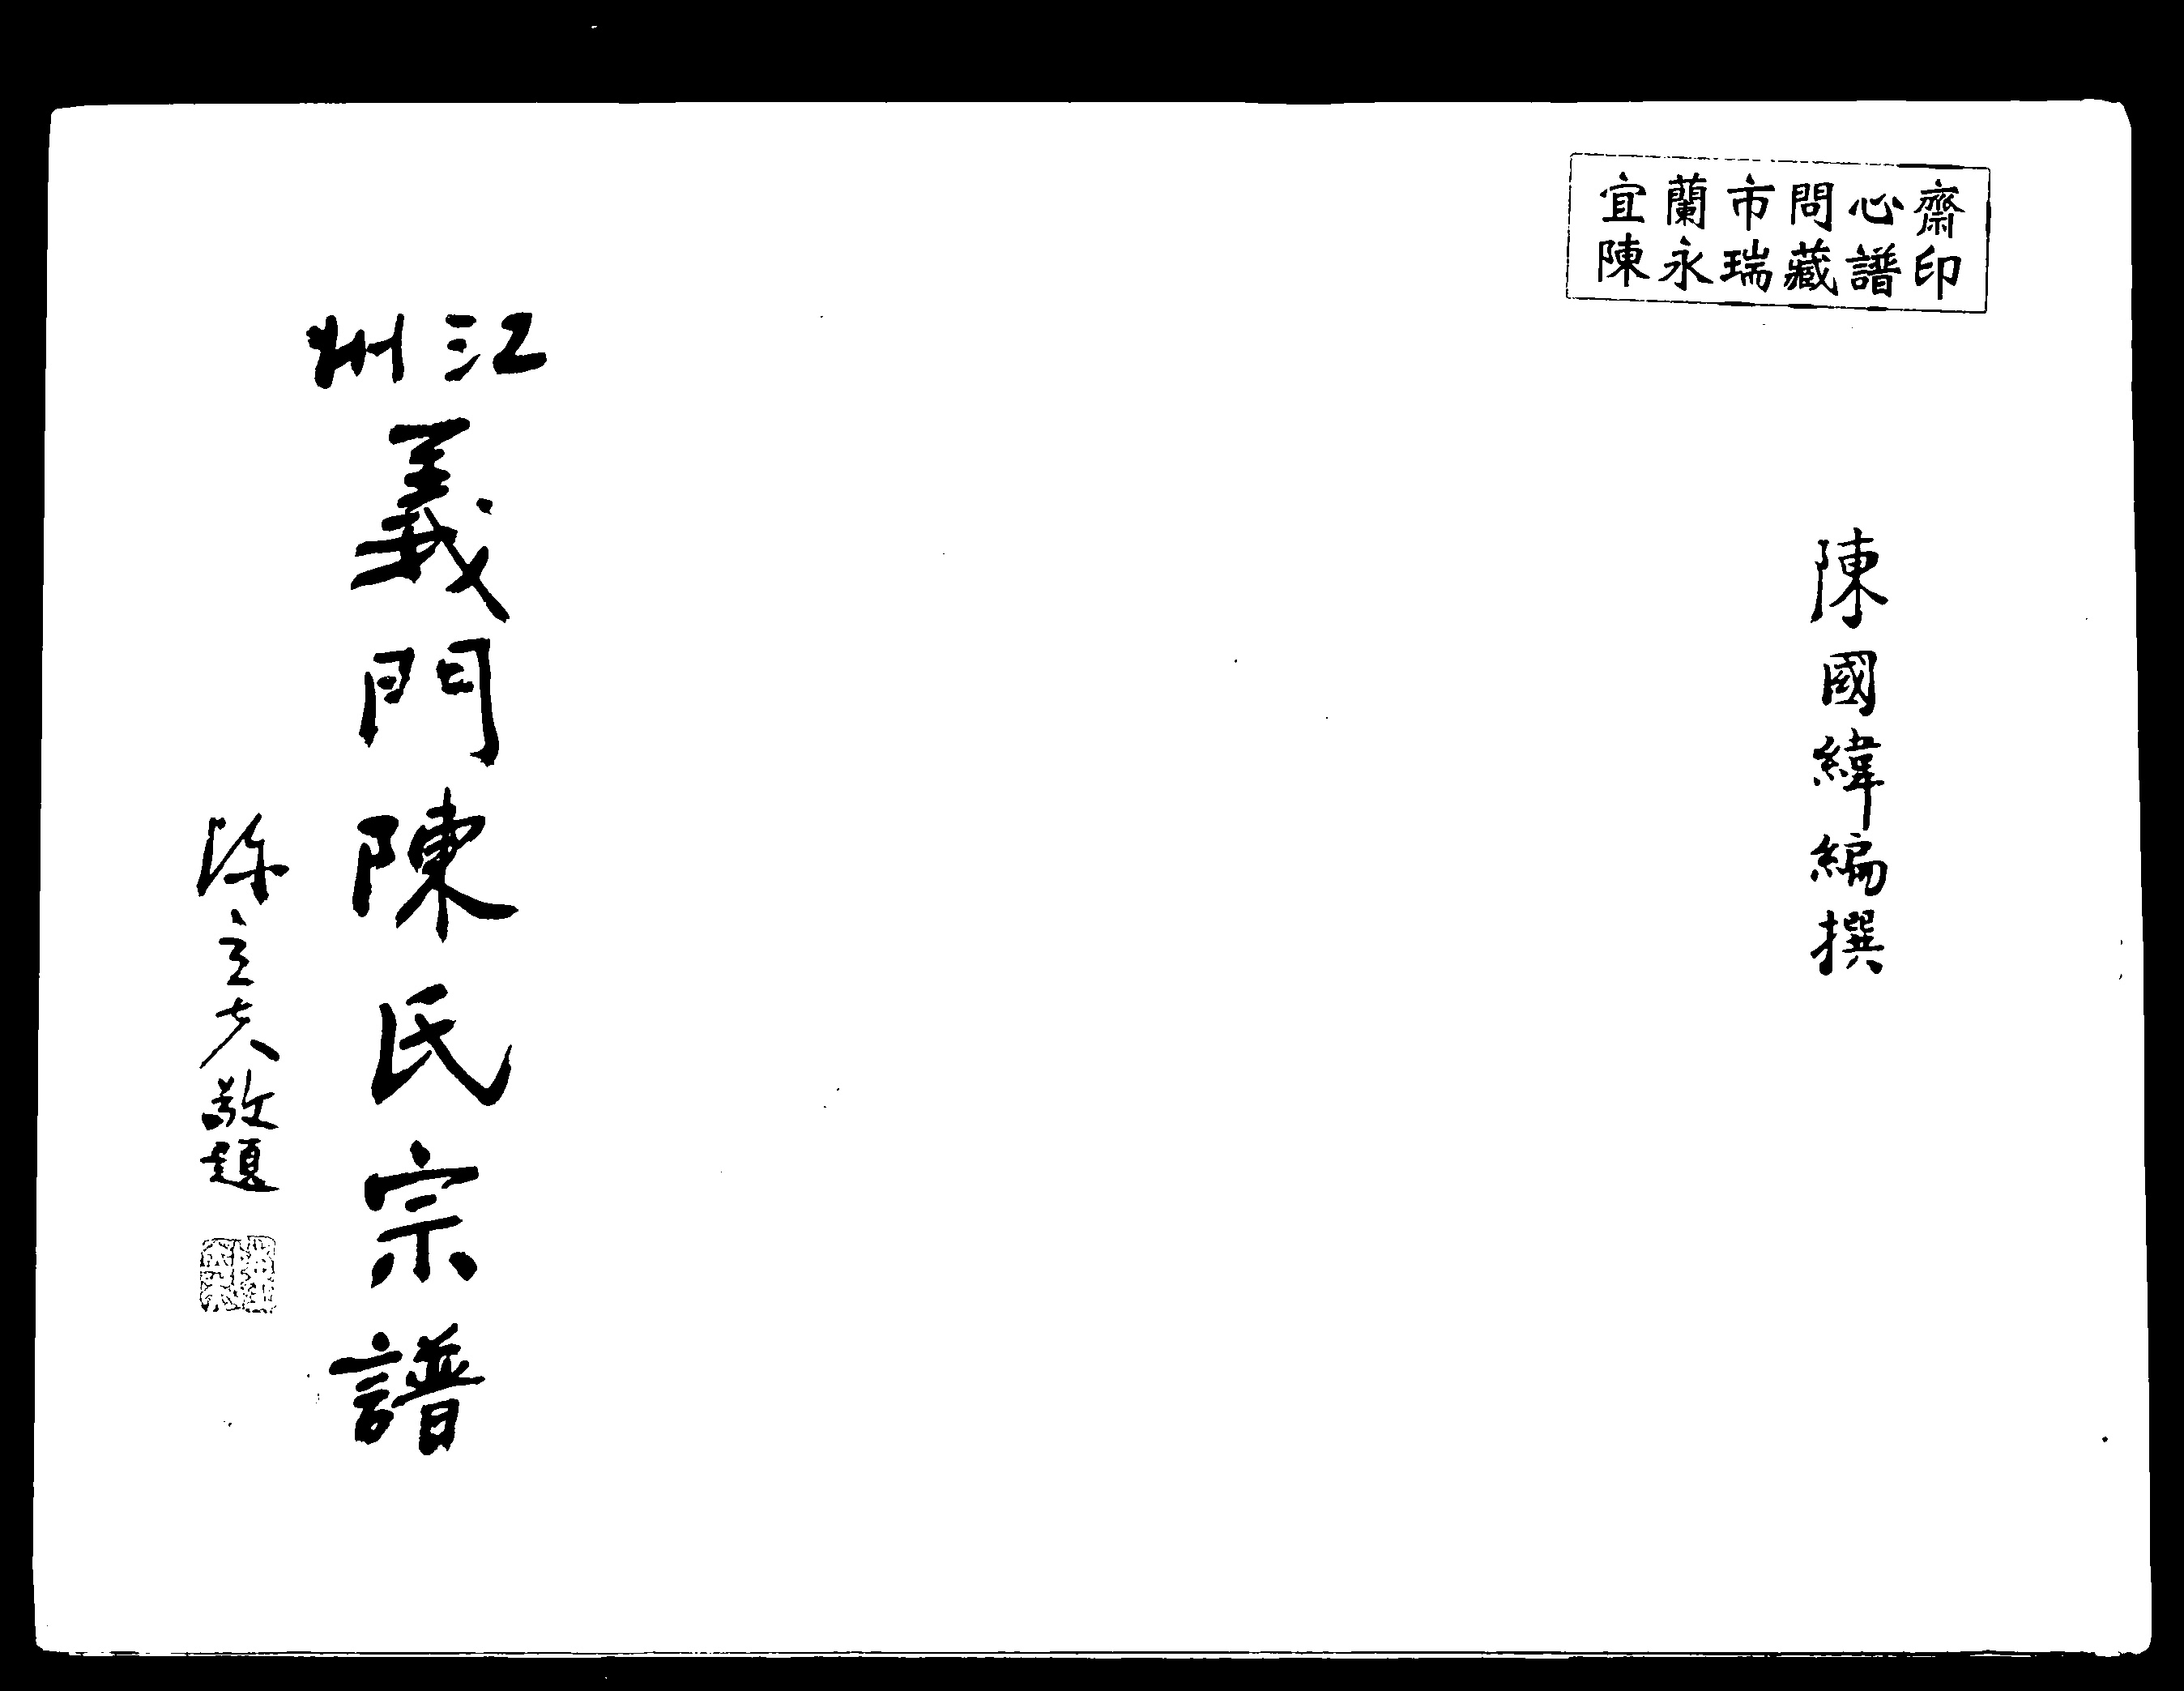 宜蘭市問心齋
陳永瑞藏譜印
陳國緯編撰
江州
義門陳氏宗譜
陳立夫敬題